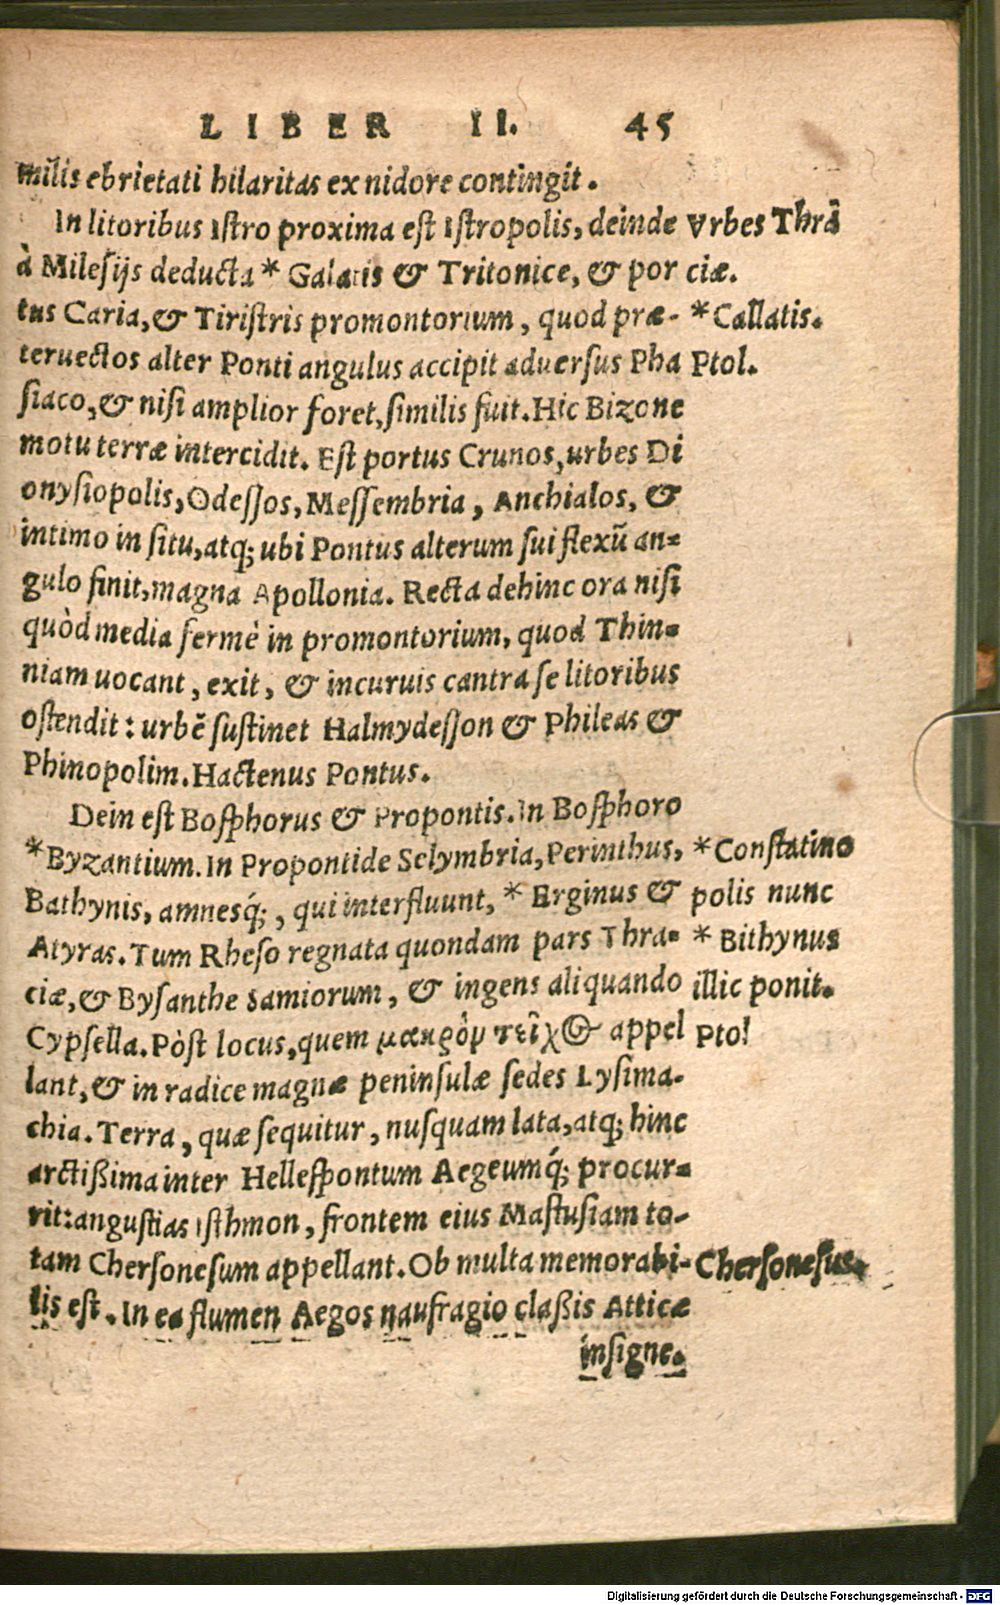 LIBER II. 45
milis ebrietati hilaritas ex nidore contingit.
In litoribus Istro proxima est Istropolis, deinde
à Milesijs deducta * Galatis & Tritonice, & por
tus Caria, & Tiristris promontorium, quod præ-
teruectos alter Ponti angulus accipit aduersus Pha
siaco, & nisi amplior foret, similis fuit. Hic Bizone
motu terræ intercidit. Est portus Crunos, urbes Di
onysiopolis, Odessos, Messembria, Anchialos, &
intimo in situ, atq; ubi Pontus alterum sui flexũ an-
gulo finit, magna Apollonia. Recta dehinc ora nisi
quòd media fermè in promontorium, quod Thin-
niam uocant, exit, & incuruis cantra se litoribus
ostendit: urbẽ sustinet Halmydesson & Phileas &
Phinopolim. Hactenus Pontus.
Dein est Bosphorus & Propontis. In Bosphoro
*Byzantium. In Propontide Selymbria, Perinthus,
Bathynis, amnesq́;, qui interfluunt, * Erginus &
Atyras. Tum Rheso regnata quondam pars Thra-
ciæ, & Bysanthe Samiorum, & ingens aliquando
Cypsella. Pòst locus, quem μακρὸν τεῖχος appel
lant, & in radice magnæ peninsulæ sedes Lysima-
chia. Terra, quæ sequitur, nusquam lata, atq; hinc
arctißima inter Hellespontum Aegeumq́; procur-
rit: angustias Isthmon, frontem eius Mastusiam to-
tam Chersonesum appellant. Ob multa memorabi-
lis est. In ea flumen Aegos naufragio claßis Atticæ
insigne.
Vrbes Thrã
ciæ.
*Callatis.
Ptol.
*Constatino
polis nunc
* Bithynus
illic ponit.
Ptol
Chersonesus.
Digitalisierung gefördert durch die Deutsche Forschungsgemeinschaft - DFG